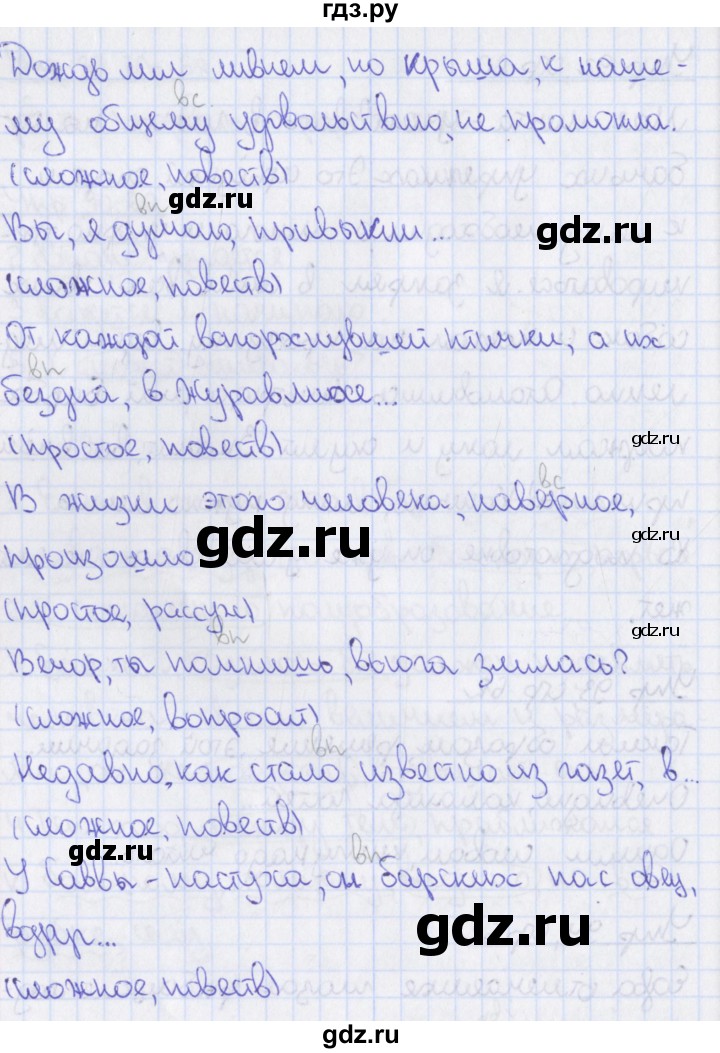 гдз.ру
Дождь лил ливнем, но крыша, к наше-
вс
му общему удовольствию, не промокла.
(сложное, повеств)
gdz.ru
вп
Вы, я думаю, привыкли...
(сложное, повеств)
gdz.ru
От каждой вспорхнувшей птички, а их
вп
бездна, в Журавлихе...
(простое, повеств)
gdz.ru
вс
В жизни этого человека, наверное,
gdz.ru
произошло
gdz.ru
(простое, рассуж)
gdz.ru
вп
Вечор, ты помнишь, вьюга злилась?
(сложное, вопросит)
вп
Недавно, как стало известно из газет, в...
(сложное, повеств)
gdz.ru
вп
У Саввы - пастуха, он барских пас овец,
вдруг...
gdz.ru
(сложное, повеств)
gdz.ru